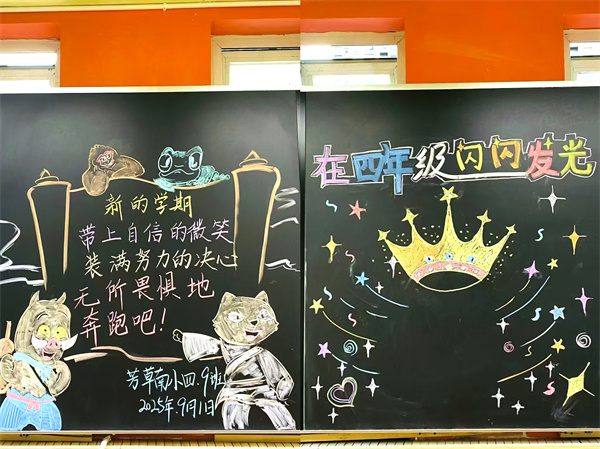 新的学期
带上自信的微笑
装满努力的决心
无所畏惧地
奔跑吧！
芳草南小四.9班
2025年9月1日
在四年级闪闪发光